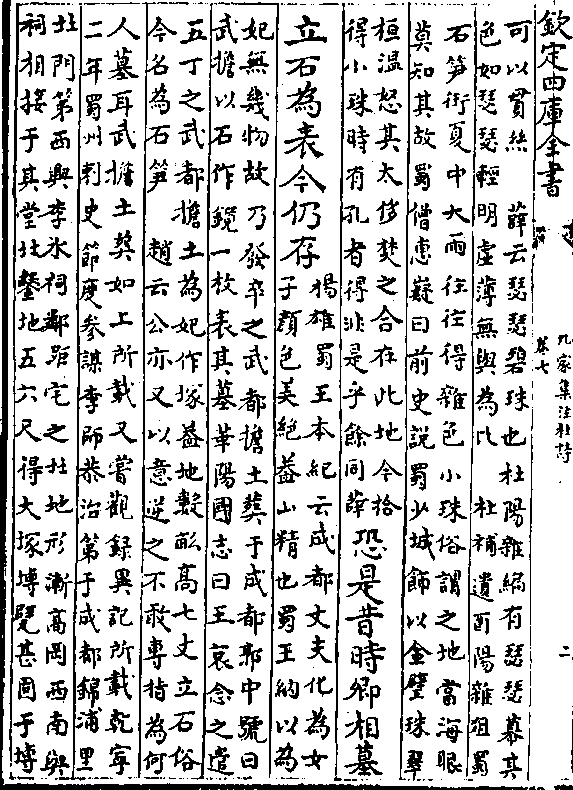 欽定四庫全書
九家集注杜詩
卷七
二
可以貫絲　薛云瑟瑟碧珠也杜陽雜編有瑟瑟幕其
色如瑟瑟輕明虚薄無與為比　杜補遺酉陽雜俎蜀
石笋街夏中大雨往往得雜色小珠俗謂之地當海眼
莫知其故蜀僧恵嶷曰前史說蜀少城飾以金璧珠翠
桓温怒其太侈焚之合在此地今拾
得小珠時有孔者得非是乎餘同薛
恐是昔時卿相墓
立石為表今仍存
揚雄蜀王本紀云成都丈夫化為女
子顔色美絶蓋山精也蜀王納以為
妃無幾物故乃發卒之武都擔土葬于成都郭中號曰
武擔以石作鏡一枚表其墓華陽國志曰王哀念之遣
五丁之武都擔土為妃作塚蓋地數畝髙七丈立石俗
今名為石笋　趙云公亦又以意逆之不敢專指為何
人墓耳武擔土葬如上所載又嘗觀録異記所載乾寧
二年蜀州刺史節度参謀李師恭治第于成都錦浦里
北門第西與李氷祠鄰距宅之北地形漸高岡西南與
祠相接于其堂北鑿地五六尺得大塚塼甓甚固于塼